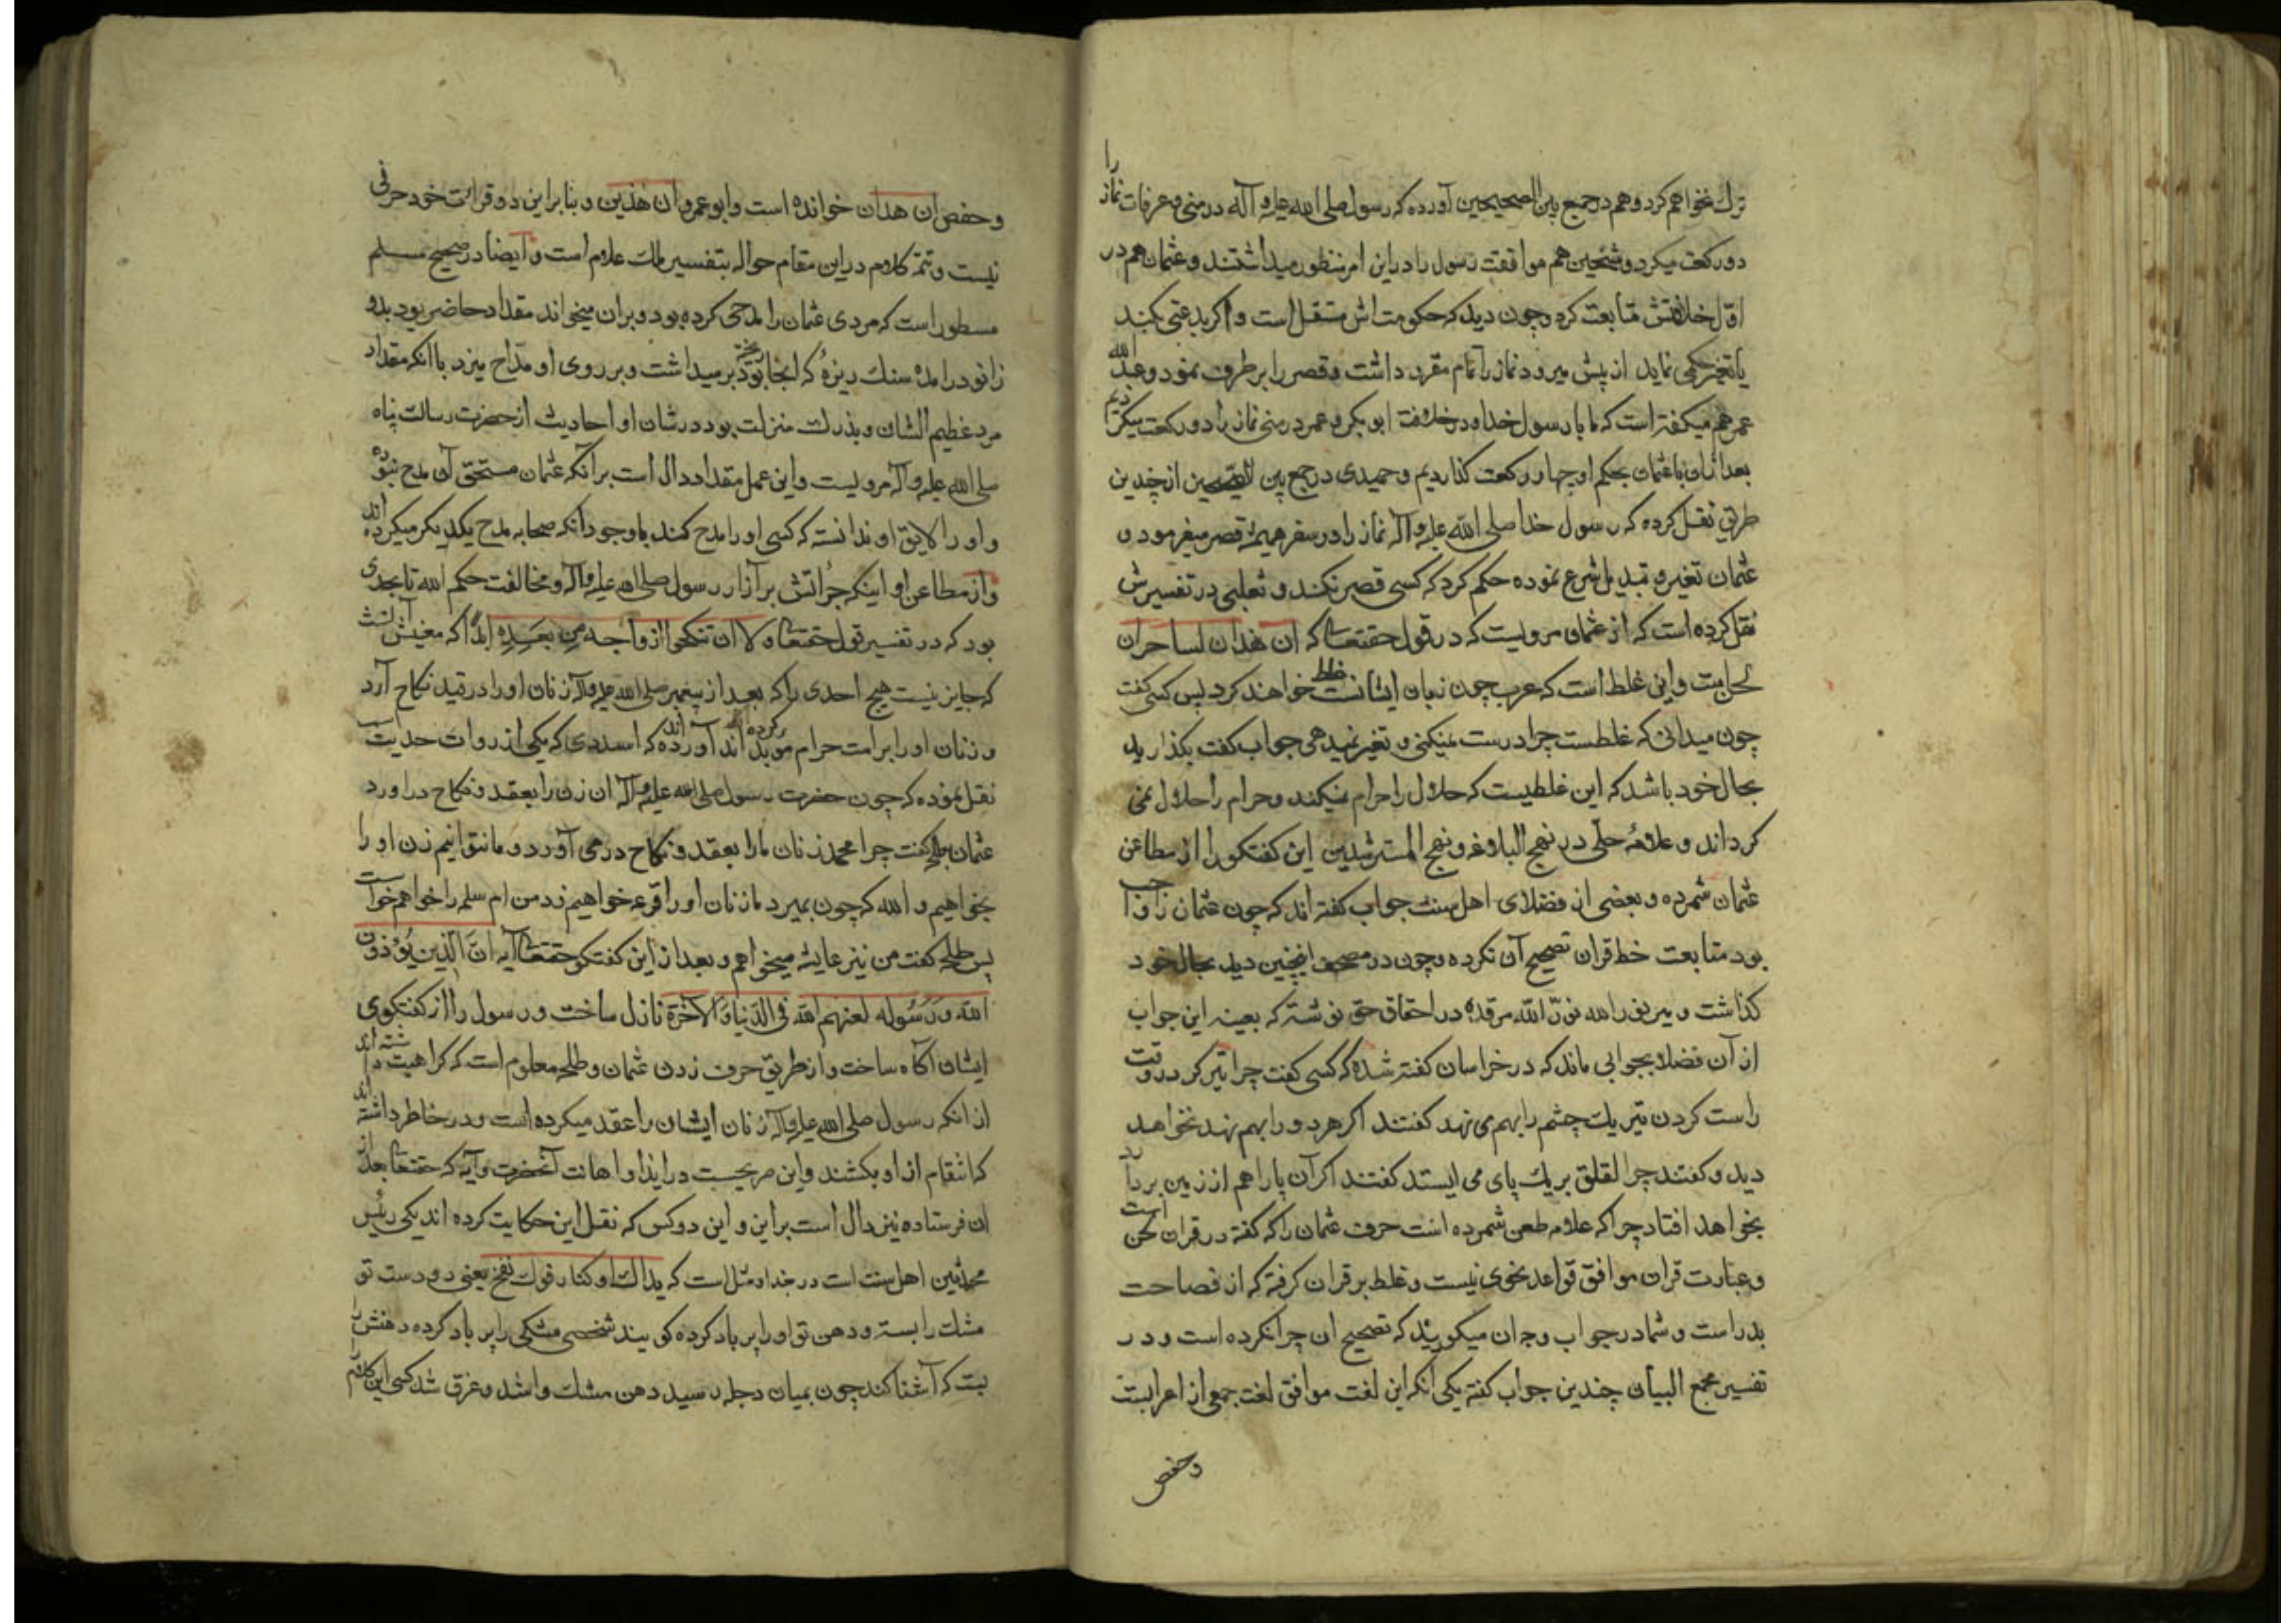 ترك نخواهم كرد و هم در جمع بين الصحيحين آورده كه رسول صلى الله عليه و آله در منى و عرفات نماز را
دو ركعت ميكرد و شيخين هم موافقت رسول را در اين امر منظور ميداشتند و عثمان هم در
اول خلافتش متابعت كرد و چون ديد كه حكومت اش مستقل است و اكر بدعتى بكند
يا تغير حكمى نمايد از پيش ميرود نماز را تمام مقرر داشت و قصر را بر طرف نمود و عبد الله
عمر هم ميكفته است كه ما با رسول خدا و در خلافت ابو بكر و عمر در منى نماز را دو ركعت ميكرديم
بعد ازان با عثمان بحكم او چهار ركعت كذارديم و حميدى در جمع بين الصحيحين از چندين
طريق نقل كرده كه رسول خدا صلى الله عليه و آله نماز را در سفر هميشه قصر ميفرمود و
عثمان تغير و تبديل شرع نموده حكم كرد كه كسى قصر نكند و ثعلبى در تفسيرش
نقل كرده است كه از عثمان مرويست كه در قول حقتعالى كه ان هذان لساحران
لحن است و اين غلط است كه عرب چون زبان ايشانست غلط خواهند كرد پس كسى كفت
چون ميدانى كه غلطست چرا درست نميكنى و تغير نميدهى جواب كفت بكذاريد
بحال خود باشد كه اين غلطيست كه حلال را حرام نميكند و حرام را حلال نمى
كرداند و علامۀ حلى در نهج البلاغه و نهج المسترشدين اين كفتكو را از مطاعن
عثمان شمرده و بعضى از فضلاى اهل سنت جواب كفته اند كه چون عثمان را واجب
بود متابعت خط قران تصحيح آن نكرده و چون در مصحف اينچنين ديد بحال خود
كذاشت و مير نور الله نور الله مرقده در احقاق حق نوشته كه بعينه اين جواب
از آن فضلا بجوابى ماند كه در خراسان كفته شده كه كسى كفت چرا تيركر در وقت
راست كردن تير يك چشم را بهم مى نهد كفتند اكر هر دو را بهم نهد نخواهد
ديد و كفتند چرا لقلق بر يك پاى مى ايستد كفتند اكر آن پا را هم از زمين بردارد
بخواهد افتاد چرا كه علامه طعن شمرده است حرف عثمان را كه كفته در قران لحن است
و عبارت قران موافق قواعد نحوى نيست و غلط بر قران كرفته كه از فصاحت
بدر است و شما در جواب وجه ان ميكوييد كه تصحيح ان چرا نكرده است و در
تفسير مجمع البيان چندين جواب كفته يكى انكه اين لغت موافق لغت جمعى از اعرابست
و حفص
و حفص ان هذان خوانده است و ابو عمرو ان هذين و بنا بر اين دو قرائت خود حرفى
نيست و تتمه كلام در اين مقام حواله بتفسير ملك علام است و ايضا در صحيح مسلم
مسطور است كه مردى عثمان را مدحى كرده بود و بران ميخواند مقداد حاضر بود بدو
زانو در امده سنك ريزۀ كه انجا ريخته بود بر ميداشت و بر روى او مداح ميزد با آنكه مقداد
مرد عظيم الشان و بزرك منزلت بود در شان او احاديث از حضرت رسالت پناه
صلى الله عليه و آله مرويست و اين عمل مقداد دال است بر آنكه عثمان مستحق آن مدح نبوده
و او را لايق او ندانسته كه كسى او را مدح كند با وجود آنكه صحابه مدح يكديكر ميكرده اند
و از مطاعن او اينكه جرأتش بر آزار رسول صلى الله عليه و آله و مخالفت حكم الله تا بحدى
بود كه در تفسير قول حقتعالى و لا ان تنكحوا ازواجه من بعده ابدا كه معنيش آنست
كه جايز نيست هيچ احدى را كه بعد از پيغمبر صلى الله عليه و آله زنان او را در قيد نكاح آرد
و زنان او را بر امت حرام مؤبد كرده اند آورده اند كه اسدى كه يكى از روات حديث
نقل نموده كه چون حضرت رسول صلى الله عليه و آله ان زن را بعقد و نكاح در اورد
عثمان بطلحه كفت چرا محمد زنان ما را بعقد و نكاح در مى آورد و ما نتوانيم زن او را
بخواهيم و الله كه چون بميرد ما زنان او را قرعه خواهيم زد من ام سلمه را خواهم خواست
پس طلحه كفت من نيز عايشه ميخواهم و بعد از اين كفتكو حقتعالى آيه ان الذين يؤذون
الله و رسوله لعنهم الله فى الدنيا و الاخرة نازل ساخت و رسول را از كفتكوى
ايشان آكاه ساخت و از طريق حرف زدن عثمان و طلحه معلوم است كه كراهيت داشته اند
از انكه رسول صلى الله عليه و آله زنان ايشان را عقد ميكرده است و در خاطر داشته اند
كه انتقام از او بكشند و اين صريحست در ايذا و اهانت آنحضرت و آيه كه حقتعالى بعد از
ان فرستاده نيز دال است بر اين و اين دو كس كه نقل اين حكايت كرده اند يكى رئيس
محدثين اهل سنت است در بغداد مثل است كه يداك اوكتا و فوك نفخ يعنى دو دست تو
مشك را بسته و دهن تو او را پر باد كرده كويند شخصى مشكى را پر باد كرده دهنش را
بست كه آشنا كند چون بميان دجله رسيد دهن مشك وا شد و غرق شد كسى اين كلام